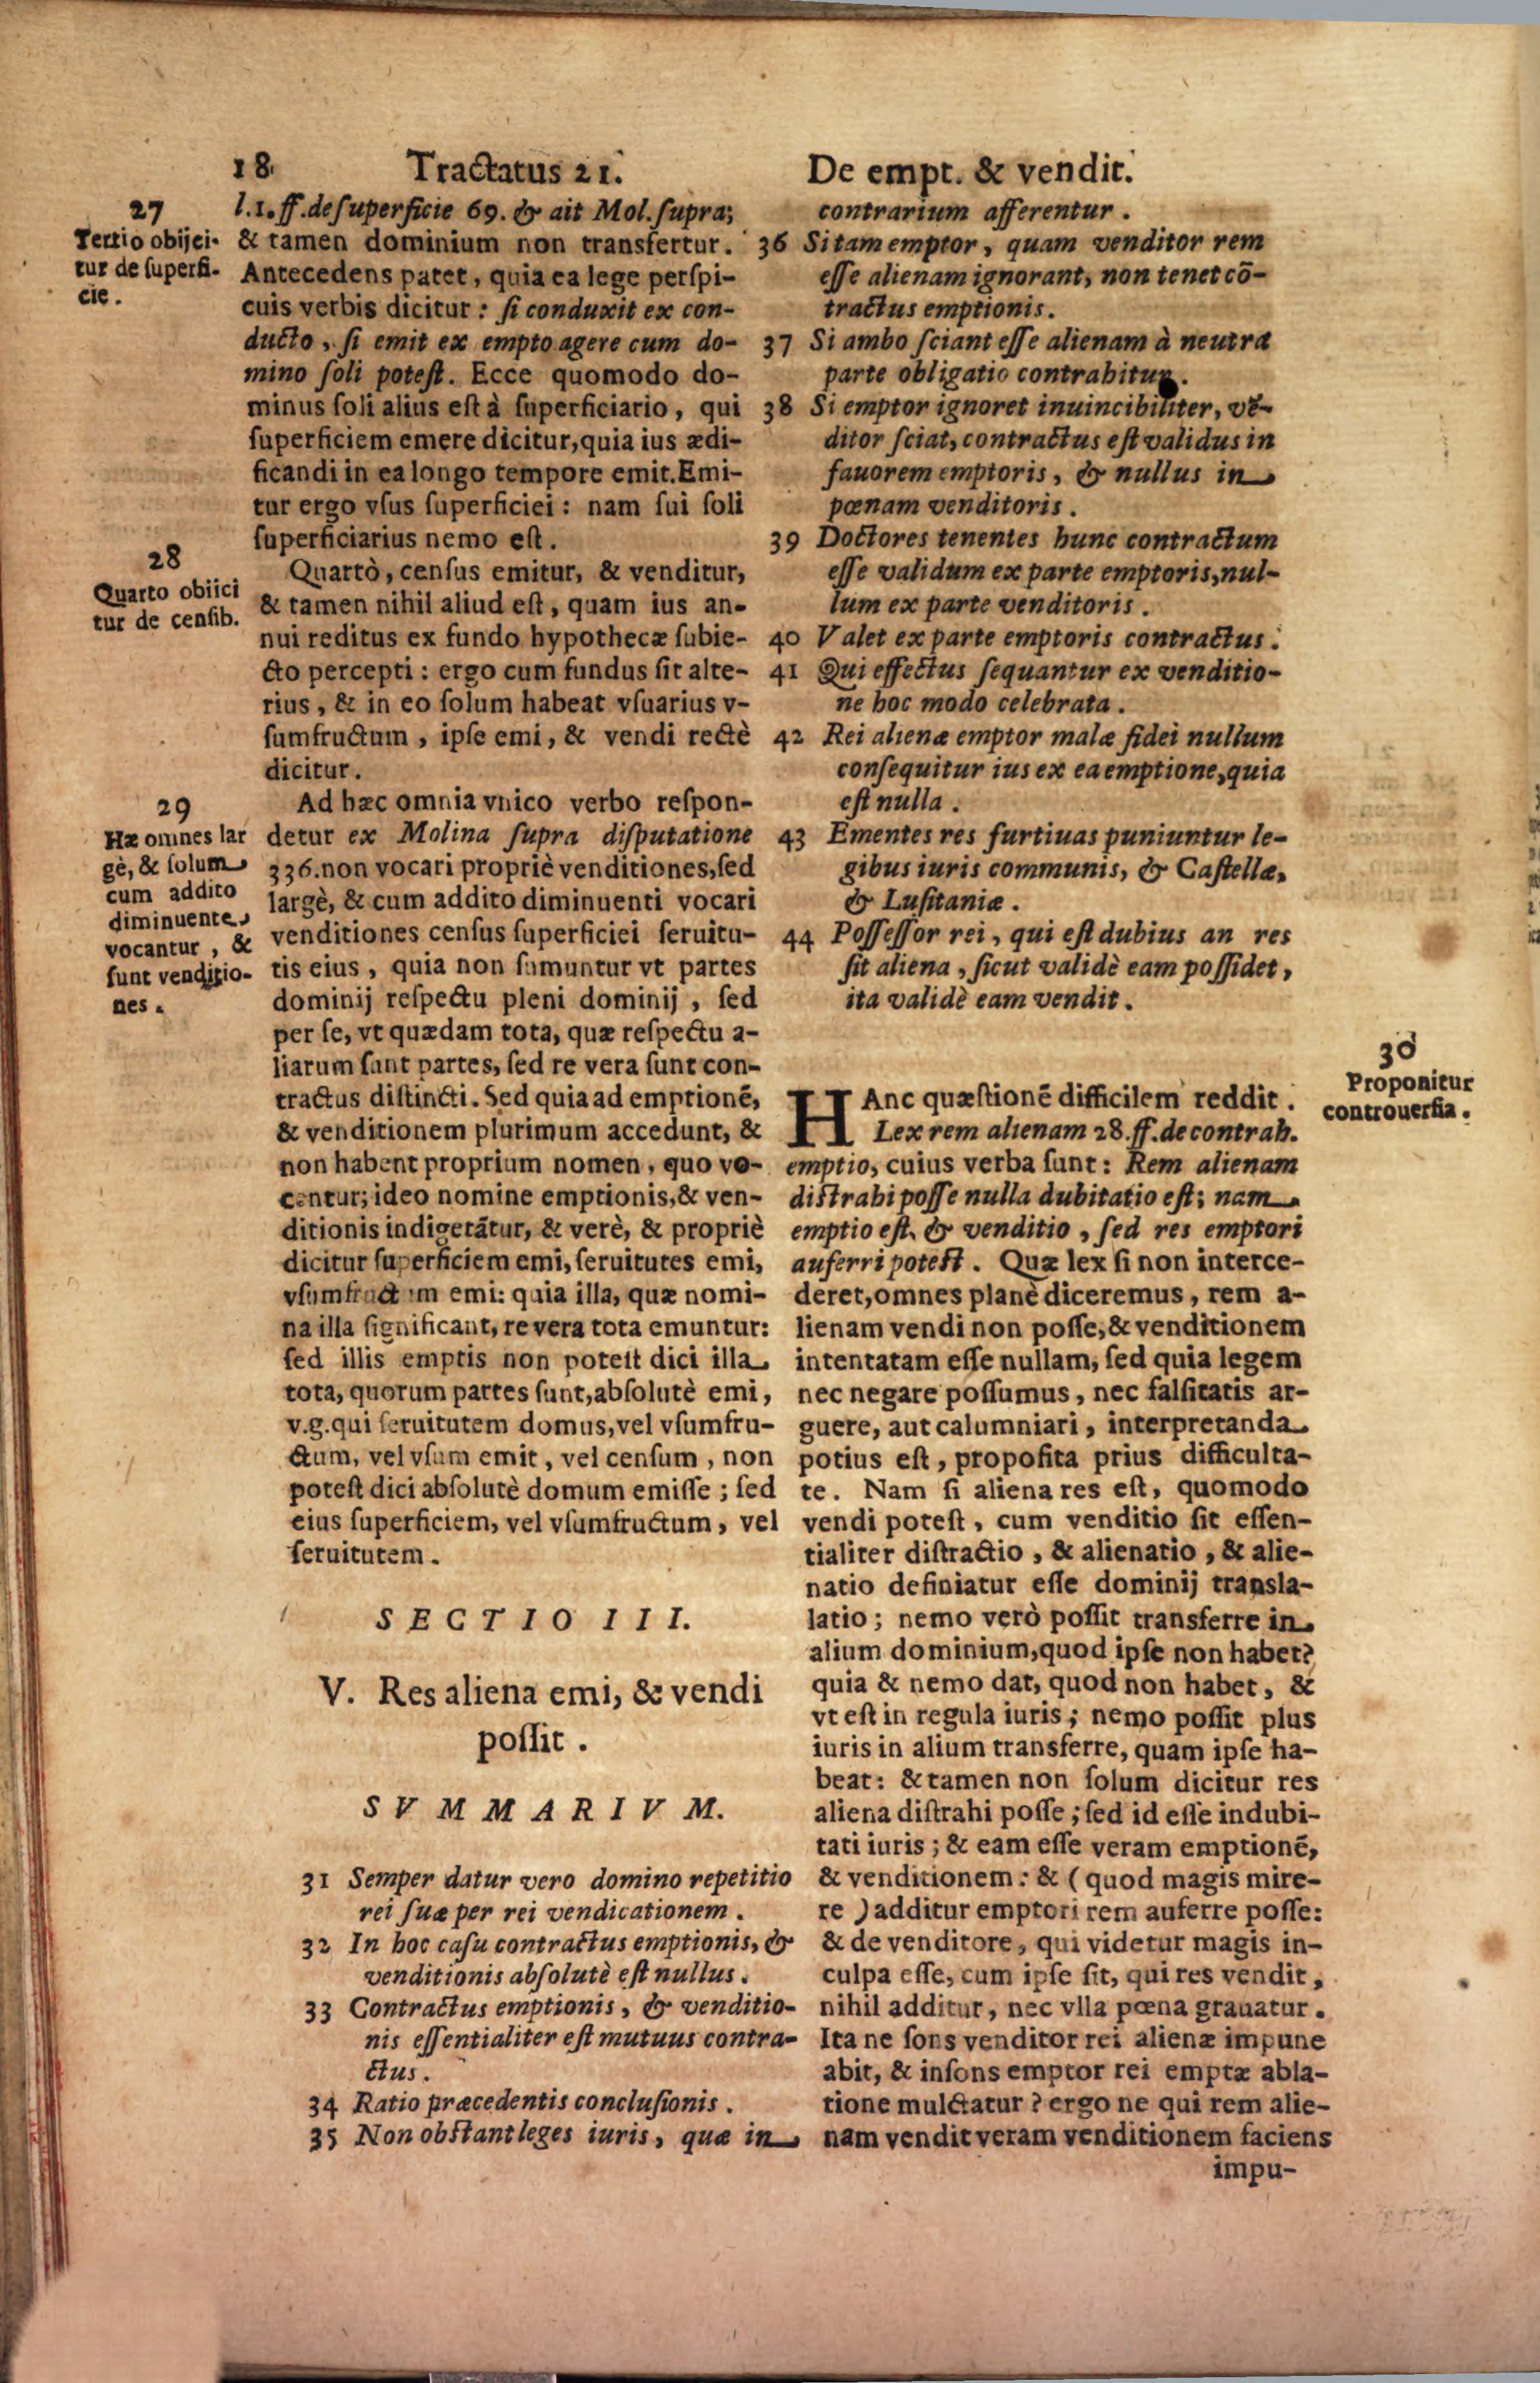 18 Tractatus 21. De empt. & vendit.
27
Tertio obijci-
tur de ſuperfi-
cie.
l.1.ff.de ſuperficie 69. & ait Mol. ſupra;
& tamen dominium non transfertur.
Antecedens patet, quia ea lege perſpi-
cuis verbis dicitur: ſi conduxit ex con-
ducto, ſi emit ex empto agere cum do-
mino ſoli poteſt. Ecce quomodo do-
minus ſoli alius eſt à ſuperficiario, qui
ſuperficiem emere dicitur, quia ius ædi-
ficandi in ea longo tempore emit. Emi-
tur ergo vſus ſuperficiei: nam ſui ſoli
ſuperficiarius nemo eſt.
28
Quarto obiici
tur de cenſib.
Quartò, cenſus emitur, & venditur,
& tamen nihil aliud eſt, quam ius an-
nui reditus ex fundo hypothecæ ſubie-
cto percepti: ergo cum fundus ſit alte-
rius, & in eo ſolum habeat vſuarius v-
ſumfructum, ipſe emi, & vendi rectè
dicitur.
29
Hæ omnes lar
gè, & ſolum
cum addito
diminuente
vocantur, &
ſunt venditio-
nes.
Ad hæc omnia vnico verbo reſpon-
detur ex Molina ſupra diſputatione
336. non vocari propriè venditiones, ſed
largè, & cum addito diminuenti vocari
venditiones cenſus ſuperficiei ſeruitu-
tis eius, quia non ſumuntur vt partes
dominij reſpectu pleni dominij, ſed
per ſe, vt quædam tota, quæ reſpectu a-
liarum ſunt partes, ſed re vera ſunt con-
tractus diſtincti. Sed quia ad emptionē,
& venditionem plurimum accedunt, &
non habent proprium nomen, quo vo-
centur; ideo nomine emptionis, & ven-
ditionis indigetãtur, & verè, & propriè
dicitur ſuperficiem emi, ſeruitutes emi,
vſumfructum emi: quia illa, quæ nomi-
na illa ſignificant, re vera tota emuntur:
ſed illis emptis non poteſt dici illa
tota, quorum partes ſunt, abſolutè emi,
v.g. qui ſeruitutem domus, vel vſumfru-
ctum, vel vſum emit, vel cenſum, non
poteſt dici abſolutè domum emiſſe; ſed
eius ſuperficiem, vel vſumfructum, vel
ſeruitutem.
SECTIO III.
V. Res aliena emi, & vendi
poſſit.
SVMMARIVM.
31 Semper datur vero domino repetitio
rei ſuæ per rei vendicationem.
32 In hoc caſu contractus emptionis, &
venditionis abſolutè eſt nullus.
33 Contractus emptionis, & venditio-
nis eſſentialiter eſt mutuus contra-
ctus.
34 Ratio præcedentis concluſionis.
35 Non obſtant leges iuris, quæ in
contrarium afferentur.
36 Si tam emptor, quam venditor rem
eſſe alienam ignorant, non tenet cō-
tractus emptionis.
37 Si ambo ſciant eſſe alienam à neutra
parte obligatio contrahitur.
38 Si emptor ignoret inuincibiliter, vē-
ditor ſciat, contractus eſt validus in
fauorem emptoris, & nullus in
pœnam venditoris.
39 Doctores tenentes hunc contractum
eſſe validum ex parte emptoris, nul-
lum ex parte venditoris.
40 Valet ex parte emptoris contractus.
41 Qui effectus ſequantur ex venditio-
ne hoc modo celebrata.
42 Rei alienæ emptor malæ fidei nullum
conſequitur ius ex ea emptione, quia
eſt nulla.
43 Ementes res furtiuas puniuntur le-
gibus iuris communis, & Caſtellæ,
& Luſitaniæ.
44 Poſſeſſor rei, qui eſt dubius an res
ſit aliena, ſicut validè eam poſſidet,
ita validè eam vendit.
30
Proponitur
controuerſia.
HAnc quæſtionē difficilem reddit.
Lex rem alienam 28.ff. de contrah.
emptio, cuius verba ſunt: Rem alienam
diſtrahi poſſe nulla dubitatio eſt; nam
emptio eſt, & venditio, ſed res emptori
auferri poteſt. Quæ lex ſi non interce-
deret, omnes planè diceremus, rem a-
lienam vendi non poſſe, & venditionem
intentatam eſſe nullam, ſed quia legem
nec negare poſſumus, nec falſitatis ar-
guere, aut calumniari, interpretanda
potius eſt, propoſita prius difficulta-
te. Nam ſi aliena res eſt, quomodo
vendi poteſt, cum venditio ſit eſſen-
tialiter diſtractio, & alienatio, & alie-
natio definiatur eſſe dominij transla-
latio; nemo verò poſſit transferre in
alium dominium, quod ipſe non habet?
quia & nemo dat, quod non habet, &
vt eſt in regula iuris; nemo poſſit plus
iuris in alium transferre, quam ipſe ha-
beat: & tamen non ſolum dicitur res
aliena diſtrahi poſſe; ſed id eſſe indubi-
tati iuris; & eam eſſe veram emptionē,
& venditionem: & (quod magis mire-
re) additur emptori rem auferre poſſe:
& de venditore, qui videtur magis in-
culpa eſſe, cum ipſe ſit, qui res vendit,
nihil additur, nec vlla pœna grauatur.
Ita ne ſons venditor rei alienæ impune
abit, & inſons emptor rei emptæ abla-
tione mulctatur? ergo ne qui rem alie-
nam vendit veram venditionem faciens
impu-